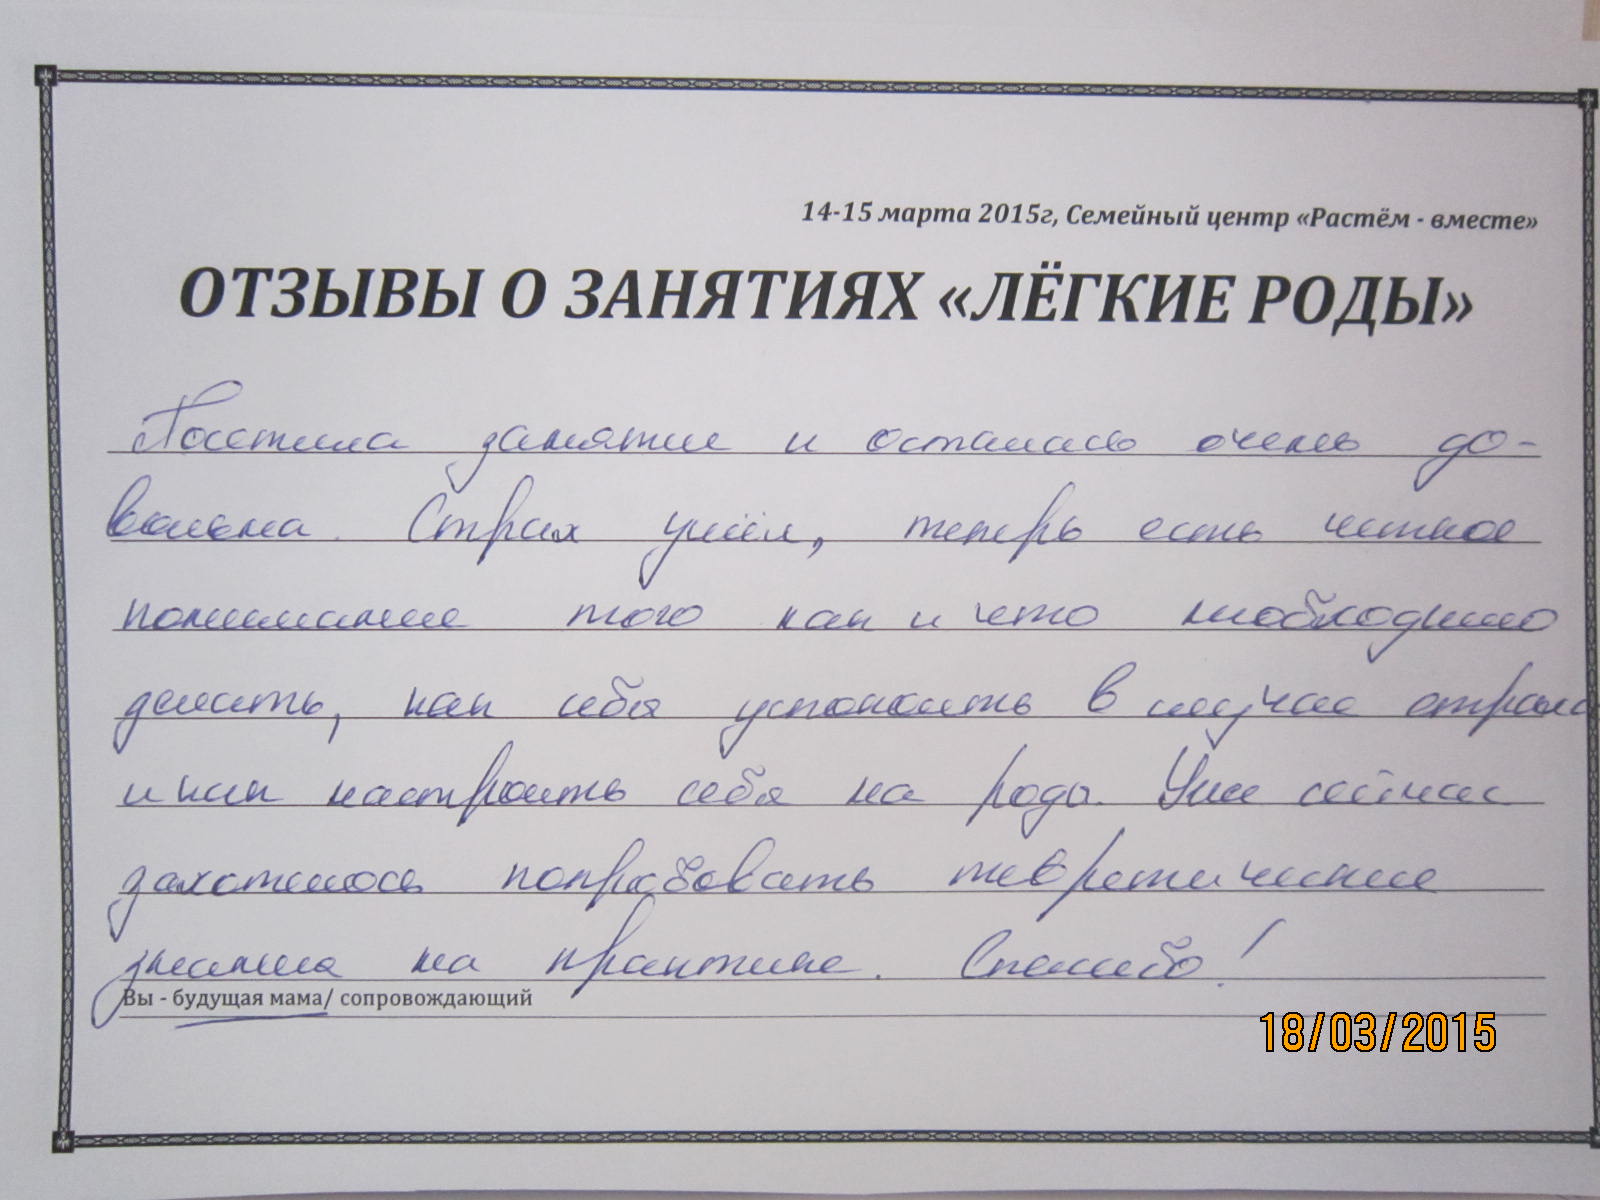 14-15 марта 2015г, Семейный центр «Растём - вместе»
ОТЗЫВЫ О ЗАНЯТИЯХ «ЛЁГКИЕ РОДЫ»
Посетила занятие и осталась очень до-
вольна. Страх ушёл, теперь есть четкое
понимание того как и что необходимо
делать, как себя успокоить в случае страха
и как настроить себя на роды. Уже сейчас
захотелось попробовать теоретические
знания на практике. Спасибо!
Вы - будущая мама/ сопровождающий
18/03/2015